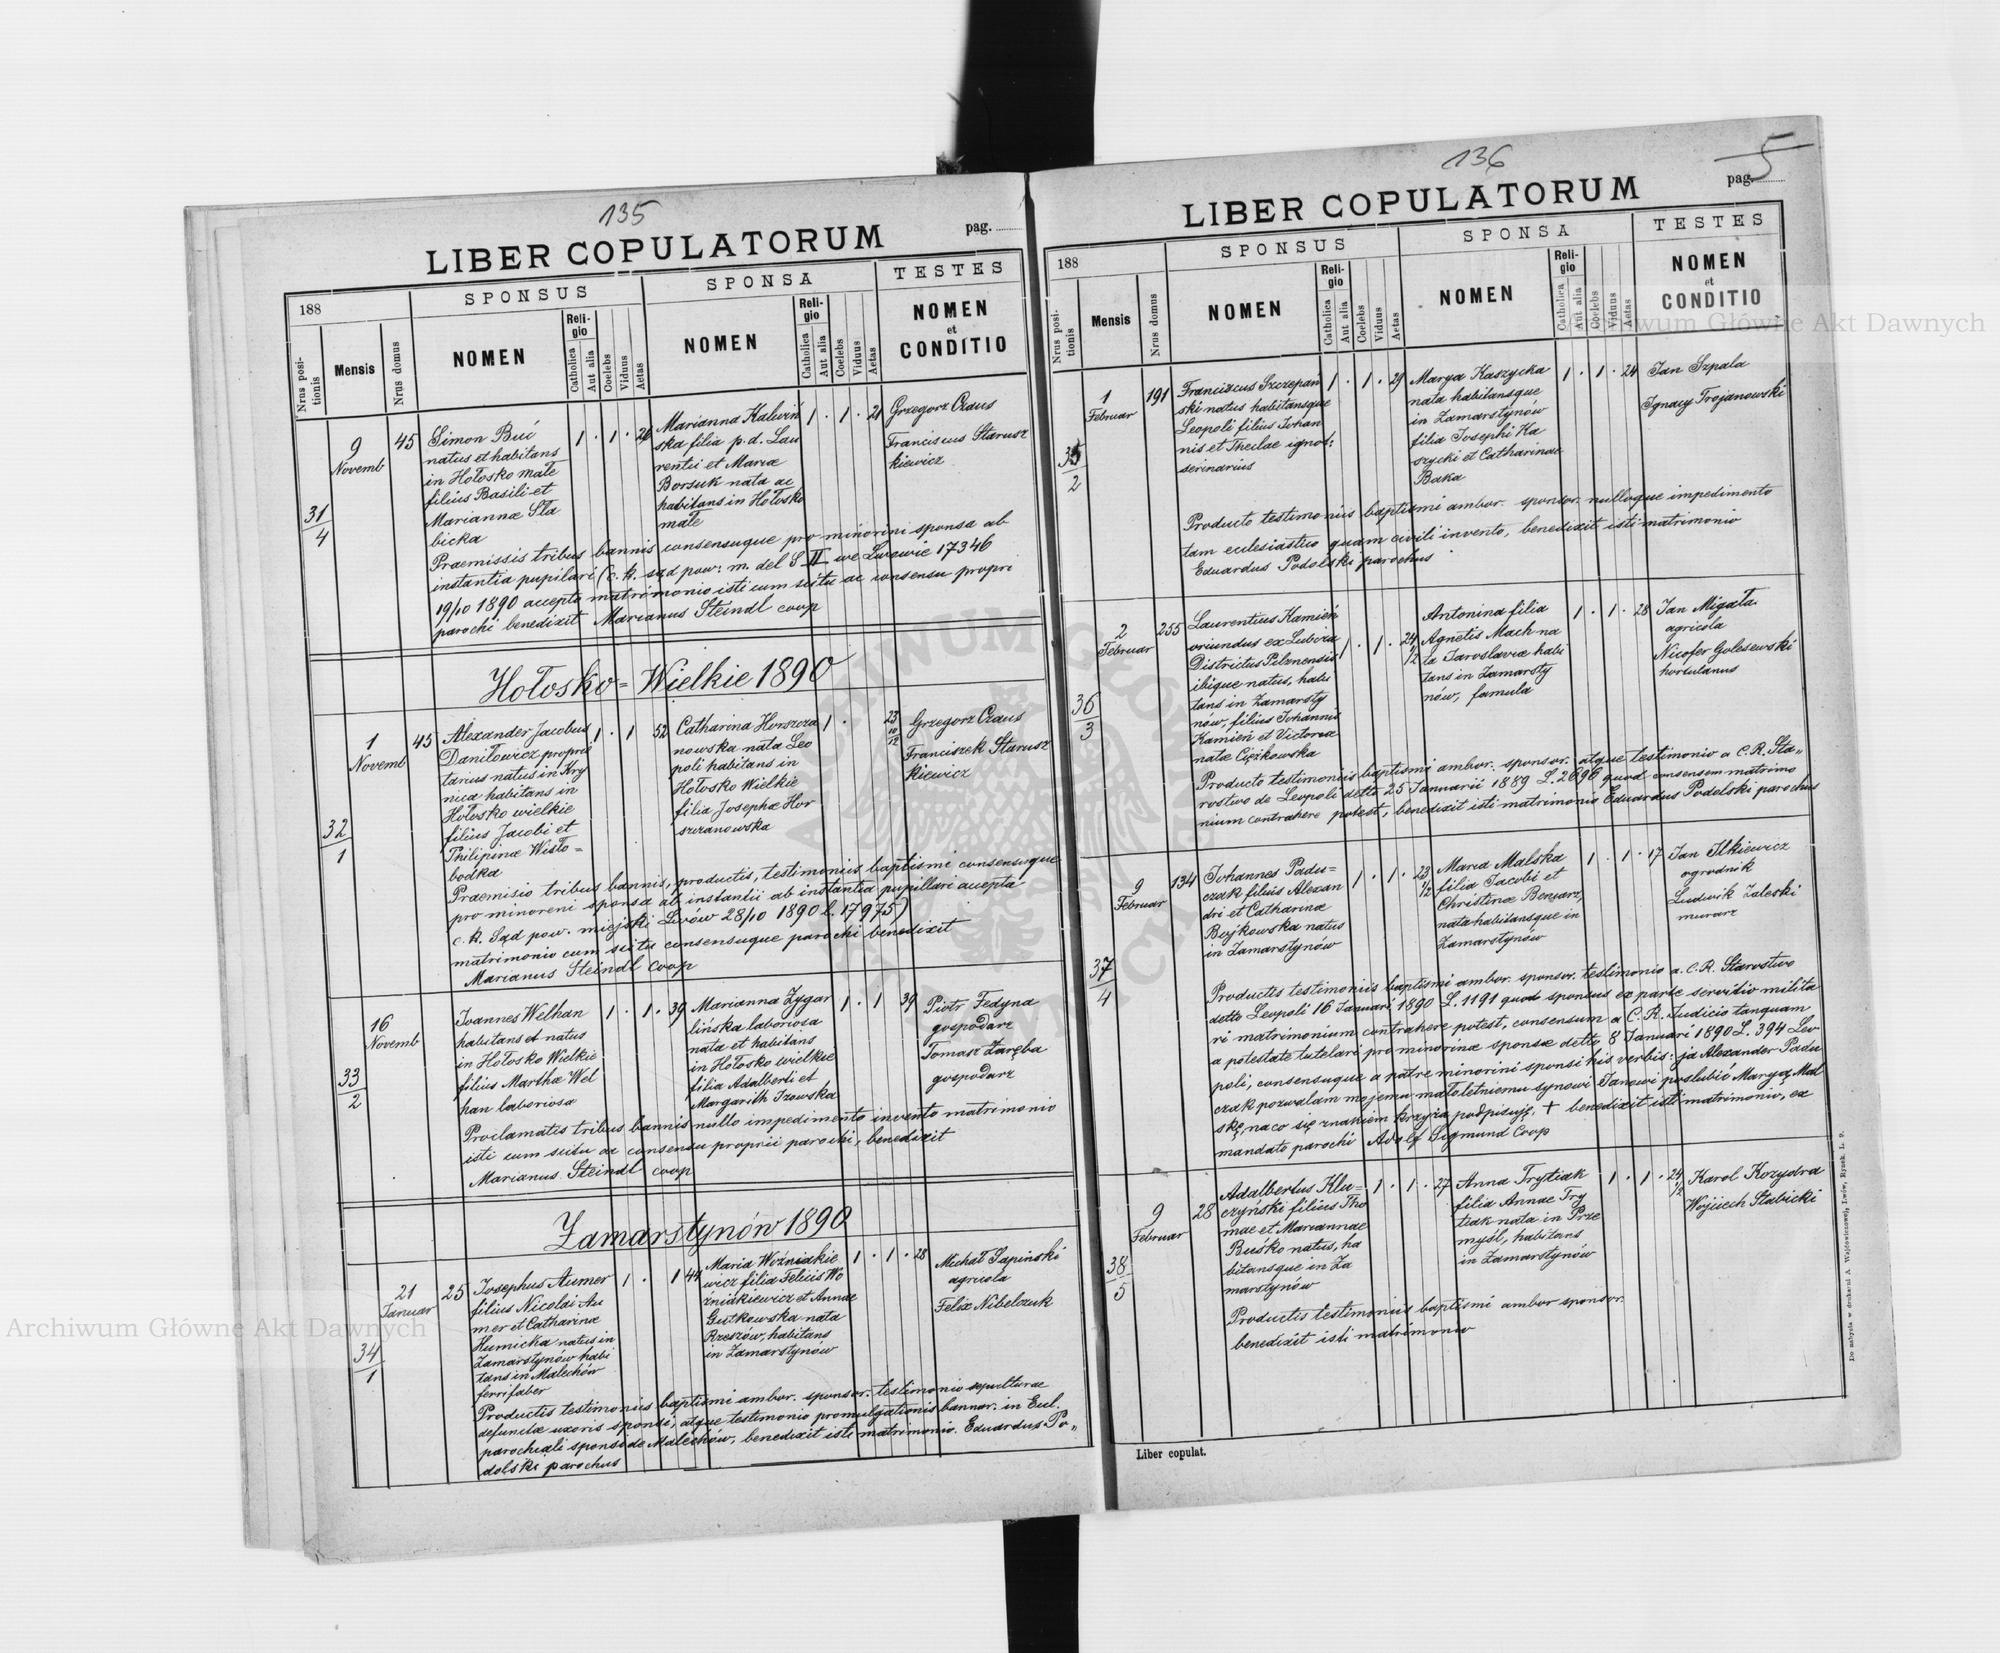 135
pag.
LIBER COPULATORUM
188
SPONSUS
SPONSA
TESTES
Nrus positionis
Mensis
Nrus domus
NOMEN
Religio
Catholica
Aut alia
Coelebs
Viduus
Aetas
NOMEN
Religio
Catholica
Aut alia
Coelebs
Viduus
Aetas
NOMEN
et
CONDITIO
31
4
9
Novemb
45
Simon Buć
natus et habitans
in Hołosko małe
filius Basili et
Mariannæ Sła
bicka
1 . 1 . 26
Marianna Kaliviń
ska filia p. d. Lau
rentii et Mariæ
Borsuk nata ac
habitans in Hołosko
małe
1 . 1 . 21
Grzegorz Czaus
Franciscus Starusz
kiewicz
Praemissis tribus bannis consensuque pro minorini sponsa ab
instantia pupilari (c. k. sąd pow: m. del S II we Lwowie 17346
19/10 1890 accepto matrimonio isti cum scitu ac consensu propri
parochi benedixit Marianus Steindl coop
Hołosko = Wielkie 1890
32
1
1
Novemb
45
Alexander Jacobus
Daniłowicz proprie
tarius natus in Kry
nicæ habitans in
Hołosko wielkie
filius Jacobi et
Philipinæ Wisło=
bodka
1 . 1 52
Catharina Horszcza
nowska nata Leo
poli habitans in
Hołosko Wielkie
filia Josephæ Hor
szczanowska
1 .
23
10
12
Grzegorz Czaus
Franciszek Starusz
kiewicz
Praemisio tribus bannis, productis, testimoniis baptismi consensuque
pro minoreni sponsa ab instantii ab instantia pupillari accepta
c. k. Sąd pow. miejski Lwów 28/10 1890 l. 17975)
matrimonio cum scitu consensuque parochi benedixit
Marianus Steindl coop
33
2
16
Novemb
Joannes Welhan
habitans et natus
in Hołosko Wielkie
filius Marthæ Wel
han laboriosæ
1 . 1 . 39
Marianna Zygar
lińska laboriosa
nata et habitans
in Hołosko wielkie
filia Adalberti et
Margarith Izowska
1 . 1 39
Piotr Fedyna
gospodarz
Tomasz Zaręba
gospodarz
Proclamatis tribus bannis nullo impedimento invento matrimonio
isti cum scitu ac consensu proprii parochi, benedixit
Marianus Steindl coop
Zamarstynów 1890
34
1
21
Januar
25
Josephus Aumer
filius Nicolai Au
mer et Catharinæ
Humicka natus in
Zamarstynów habi
tans in Malechów
ferrifaber
1 . 1 44
Maria Woźniakie
wicz filia Felicis Wo
źniakiewicz et Annae
Gutkowska nata
Rzeszów, habitans
in Zamarstynów
1 . 1 . 28
Michał Sapiński
agricola
Felix Nibelczuk
Productis testimoniis baptismi ambor. sponsor. testimonio sepulturae
defunctæ uxoris sponsi, atque testimonio promulgationis bannor. in Eul.
parochiali sponsi de Malechów, benedixit isti matrimonio. Eduardus Po„
dolski parochus
136
5
pag.
LIBER COPULATORUM
188
SPONSUS
SPONSA
TESTES
Nrus positionis
Mensis
Nrus domus
NOMEN
Religio
Catholica
Aut alia
Coelebs
Viduus
Aetas
NOMEN
Religio
Catholica
Aut alia
Coelebs
Viduus
Aetas
NOMEN
et
CONDITIO
35
2
1
Februar
191
Franciscus Szczepań
ski natus habitansque
Leopoli filius Johan
nis et Theclae ignob:
serinarius
1 . 1 . 29
Marya Kaszycka
nata habitansque
in Zamarstynów
filia Josephi Ka
szycki et Catharinae
Baka
1 . 1 . 24
Jan Szpala
Ignacy Trojanowski
Producto testimoniis baptismi ambor. sponsor. nulloque impedimento
tam ecclesiastico quam civili invento, benedixit isti matrimonio
Eduardus Podolski parochus
36
3
2
Februar
255
Laurentius Kamień
oriundus ex Lubcza
Districtus Pilznensis
ibique natus, habi
tans in Zamarsty
now, filius Johannis
Kamień et Victoriæ
natæ Ciężkowska
1 . 1 . 24
1/2
Antonina filia
Agnetis Mach na
ta Jaroslaviæ habi
tans in Zamarsty
nów, famula
1 . 1 . 28
Jan Migała
agricola
Nicofer Golesewski
hortulanus
Producto testimoniis baptismi ambor. sponsor. atque testimonio a C. R. Sta„
rostwo de Leopoli detto 25 Januarii 1889 L. 2696 quod consensem matrimo
nium contrahere potest, benedixit isti matrimonio Eduardus Podolski parochus
37
4
9
Februar
134
Johannes Padu=
czak filius Alexan
dri et Catharinæ
Bojkowska natus
in Zamarstynów
1 . 1 . 23
1/2
Maria Malska
filia Jacobi et
Christinæ Benyarz,
nata habitansque in
Zamarstynów
1 . 1 . 17
Jan Ilkiewicz
ogrodnik
Ludwik Zaleski
murarz
Productis testimoniis baptismi ambor. sponsor. testimonio a. C. R. Starostwo
detto Leopoli 16 Januari 1890 L. 1191 quod sponsus ex parte servitio milita
ri matrimonium contrahere potest, consensum a C. R. Judicio tanquam
a potestate tutelari pro minorinæ sponsæ detto 8 Januari 1890 L. 394 Leo
poli, consensuque a patre minorini sponsi his verbis: ja Alexander Padu
czak pozwalam mojemu małoletniemu synowi Janowi poslubić Maryą Mal
skę, na co się znakiem krzyża podpisuję. + benedixit isti matrimonio, ex
mandato parochi Adolf Sigmund Coop
38
5
9
Februar
28
Adalbertus Klu=
czyński filius Tho
mae et Mariannae
Buśko natus, ha
bitansque in Za
marstynów
1 . 1 . 27
Anna Trytiak
filia Annae Try
tiak nata in Prze
myśl, habitans
in Zamarstynów
1 . 1 . 24
1/2
Karol Kozydra
Wojciech Słabicki
Productis testimoniis baptismi ambor sponsor.
benedixit isti matrimonio
Liber copulat.
Do nabycia w drukarni A. Wajdowiczowej, Lwów, Rynek L. 9.
Archiwum Główne Akt Dawnych
Archiwum Główne Akt Dawnych